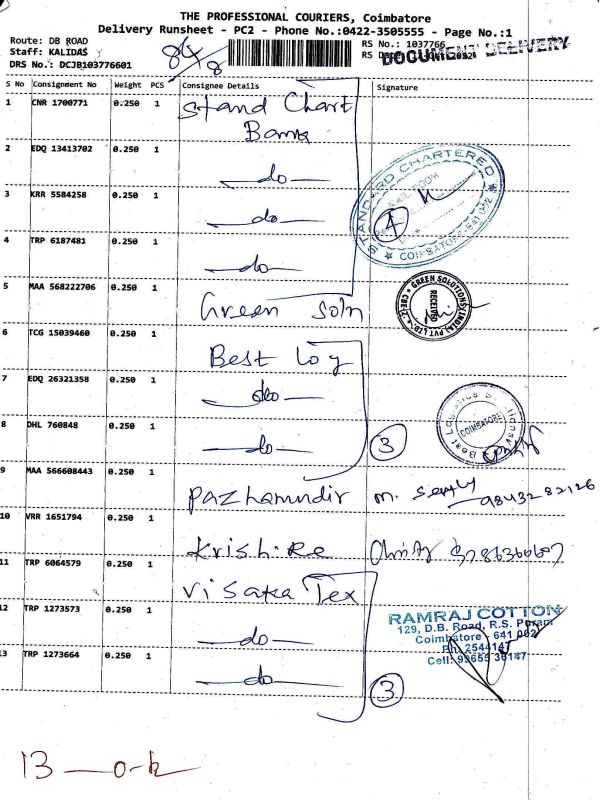 THE PROFESSIONAL COURIERS, Coimbatore
Delivery Runsheet - PC2 - Phone No.:0422-3505555 - Page No.:1
Route: DB ROAD
Staff: KALIDAS
DRS No.: DCJB103776601
8/8
RS No.: 1037766
DOCUMENT DELIVERY
S No Consignment No Weight PCS Consignee Details Signature
1 CNR 1700771 0.250 1 Stand Chart
Bank
2 EDQ 13413702 0.250 1 do
3 KRR 5584258 0.250 1 do
4 TRP 6187481 0.250 1 do
STANDARD CHARTERED
4
5 MAA 568222706 0.250 1 Green Soln
GREEN SOLUTIONS
RECEIVED
6 TCG 15039460 0.250 1 Best Log
7 EDQ 26321358 0.250 1 do
8 DHL 760848 0.250 1 do
3
COIMBATORE
9 MAA 566608443 0.250 1 Pazhamudir
10 VRR 1651794 0.250 1 Krish.Re
11 TRP 6064579 0.250 1 Visaka Tex
12 TRP 1273573 0.250 1 do
13 TRP 1273664 0.250 1 do
3
RAMRAJ COTTON
129, D.B. Road, R.S. Puram
Coimbatore - 641 002
Ph: 2544147
Cell: 93655 36147
13 — o-k